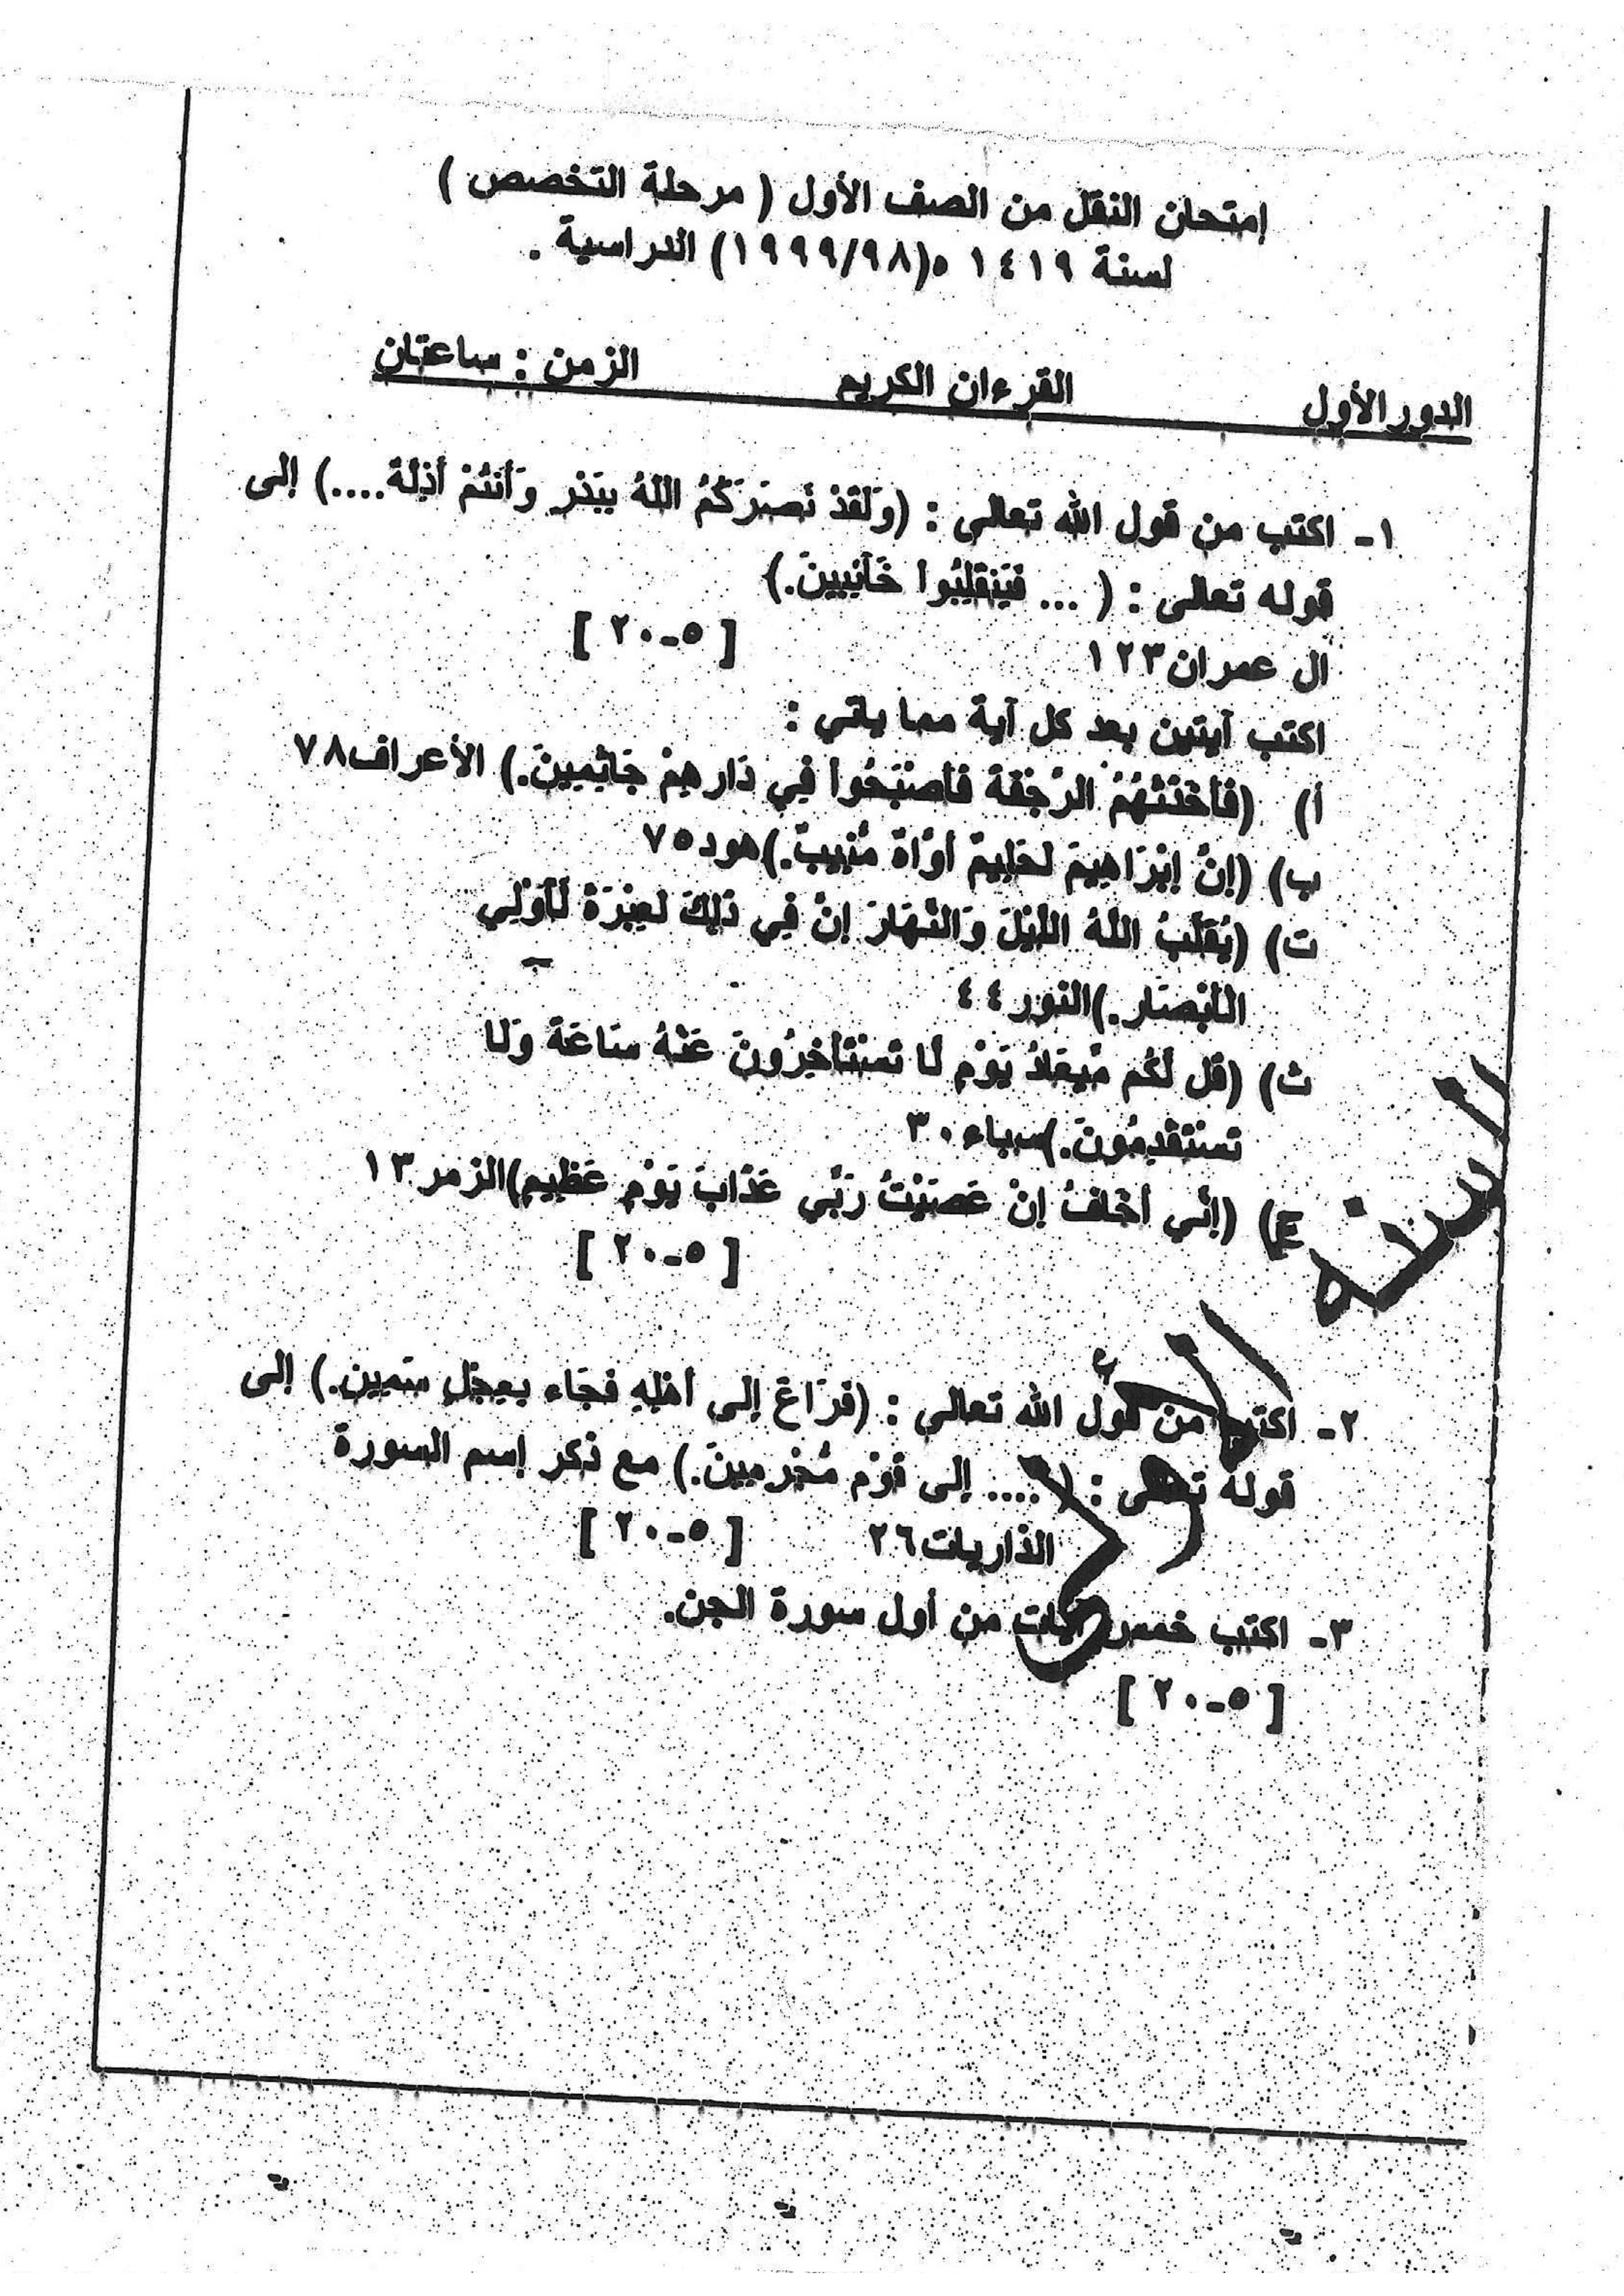 إمتحان النقل من الصف الأول ( مرحلة التخصص )
لسنة ١٤١٩ ه(١٩٩٩/٩٨) الدراسية .
الدور الأول القرءان الكريم الزمن : ساعتان
١- اكتب من قول الله تعالى : (وَلَقَدْ نَصَرَكُمُ اللَّهُ بِبَدْرٍ وَأَنْتُمْ أَذِلَّةٌ....) إلى
قوله تعالى : ( ... فَيَنقَلِبُوا خَائِبِينَ.)
ال عمران١٢٣ [ ٥-٢٠ ]
اكتب آيتين بعد كل آية مما ياتي :
أ) (فَأَخَذَتْهُمُ الرَّجْفَةُ فَأَصْبَحُوا فِي دَارِهِمْ جَاثِمِينَ.) الأعراف٧٨
ب) (إِنَّ إِبْرَاهِيمَ لَحَلِيمٌ أَوَّاهٌ مُنِيبٌ.)هود٧٥
ت) (يُقَلِّبُ اللَّهُ اللَّيْلَ وَالنَّهَارَ إِنَّ فِي ذَلِكَ لَعِبْرَةً لِأُولِي
الْأَبْصَارِ.)النور٤٤
ث) (قُل لَكُم مِيعَادُ يَوْمٍ لَا تَسْتَأْخِرُونَ عَنْهُ سَاعَةً وَلَا
تَسْتَقْدِمُونَ.)سباء٣٠
ج) (إِنِّي أَخَافُ إِنْ عَصَيْتُ رَبِّي عَذَابَ يَوْمٍ عَظِيمٍ)الزمر١٣
[ ٥-٢٠ ]
٢- اكتب من قول الله تعالى : (فَرَاغَ إِلَى أَهْلِهِ فَجَاءَ بِعِجْلٍ سَمِينٍ.) إلى
قوله تعالى : ( .... إِلَى قَوْمٍ مُجْرِمِينَ.) مع ذكر إسم السورة
الذاريات٢٦ [ ٥-٢٠ ]
٣- اكتب خمس آيات من أول سورة الجن.
[ ٥-٢٠ ]
السنه
الأولى